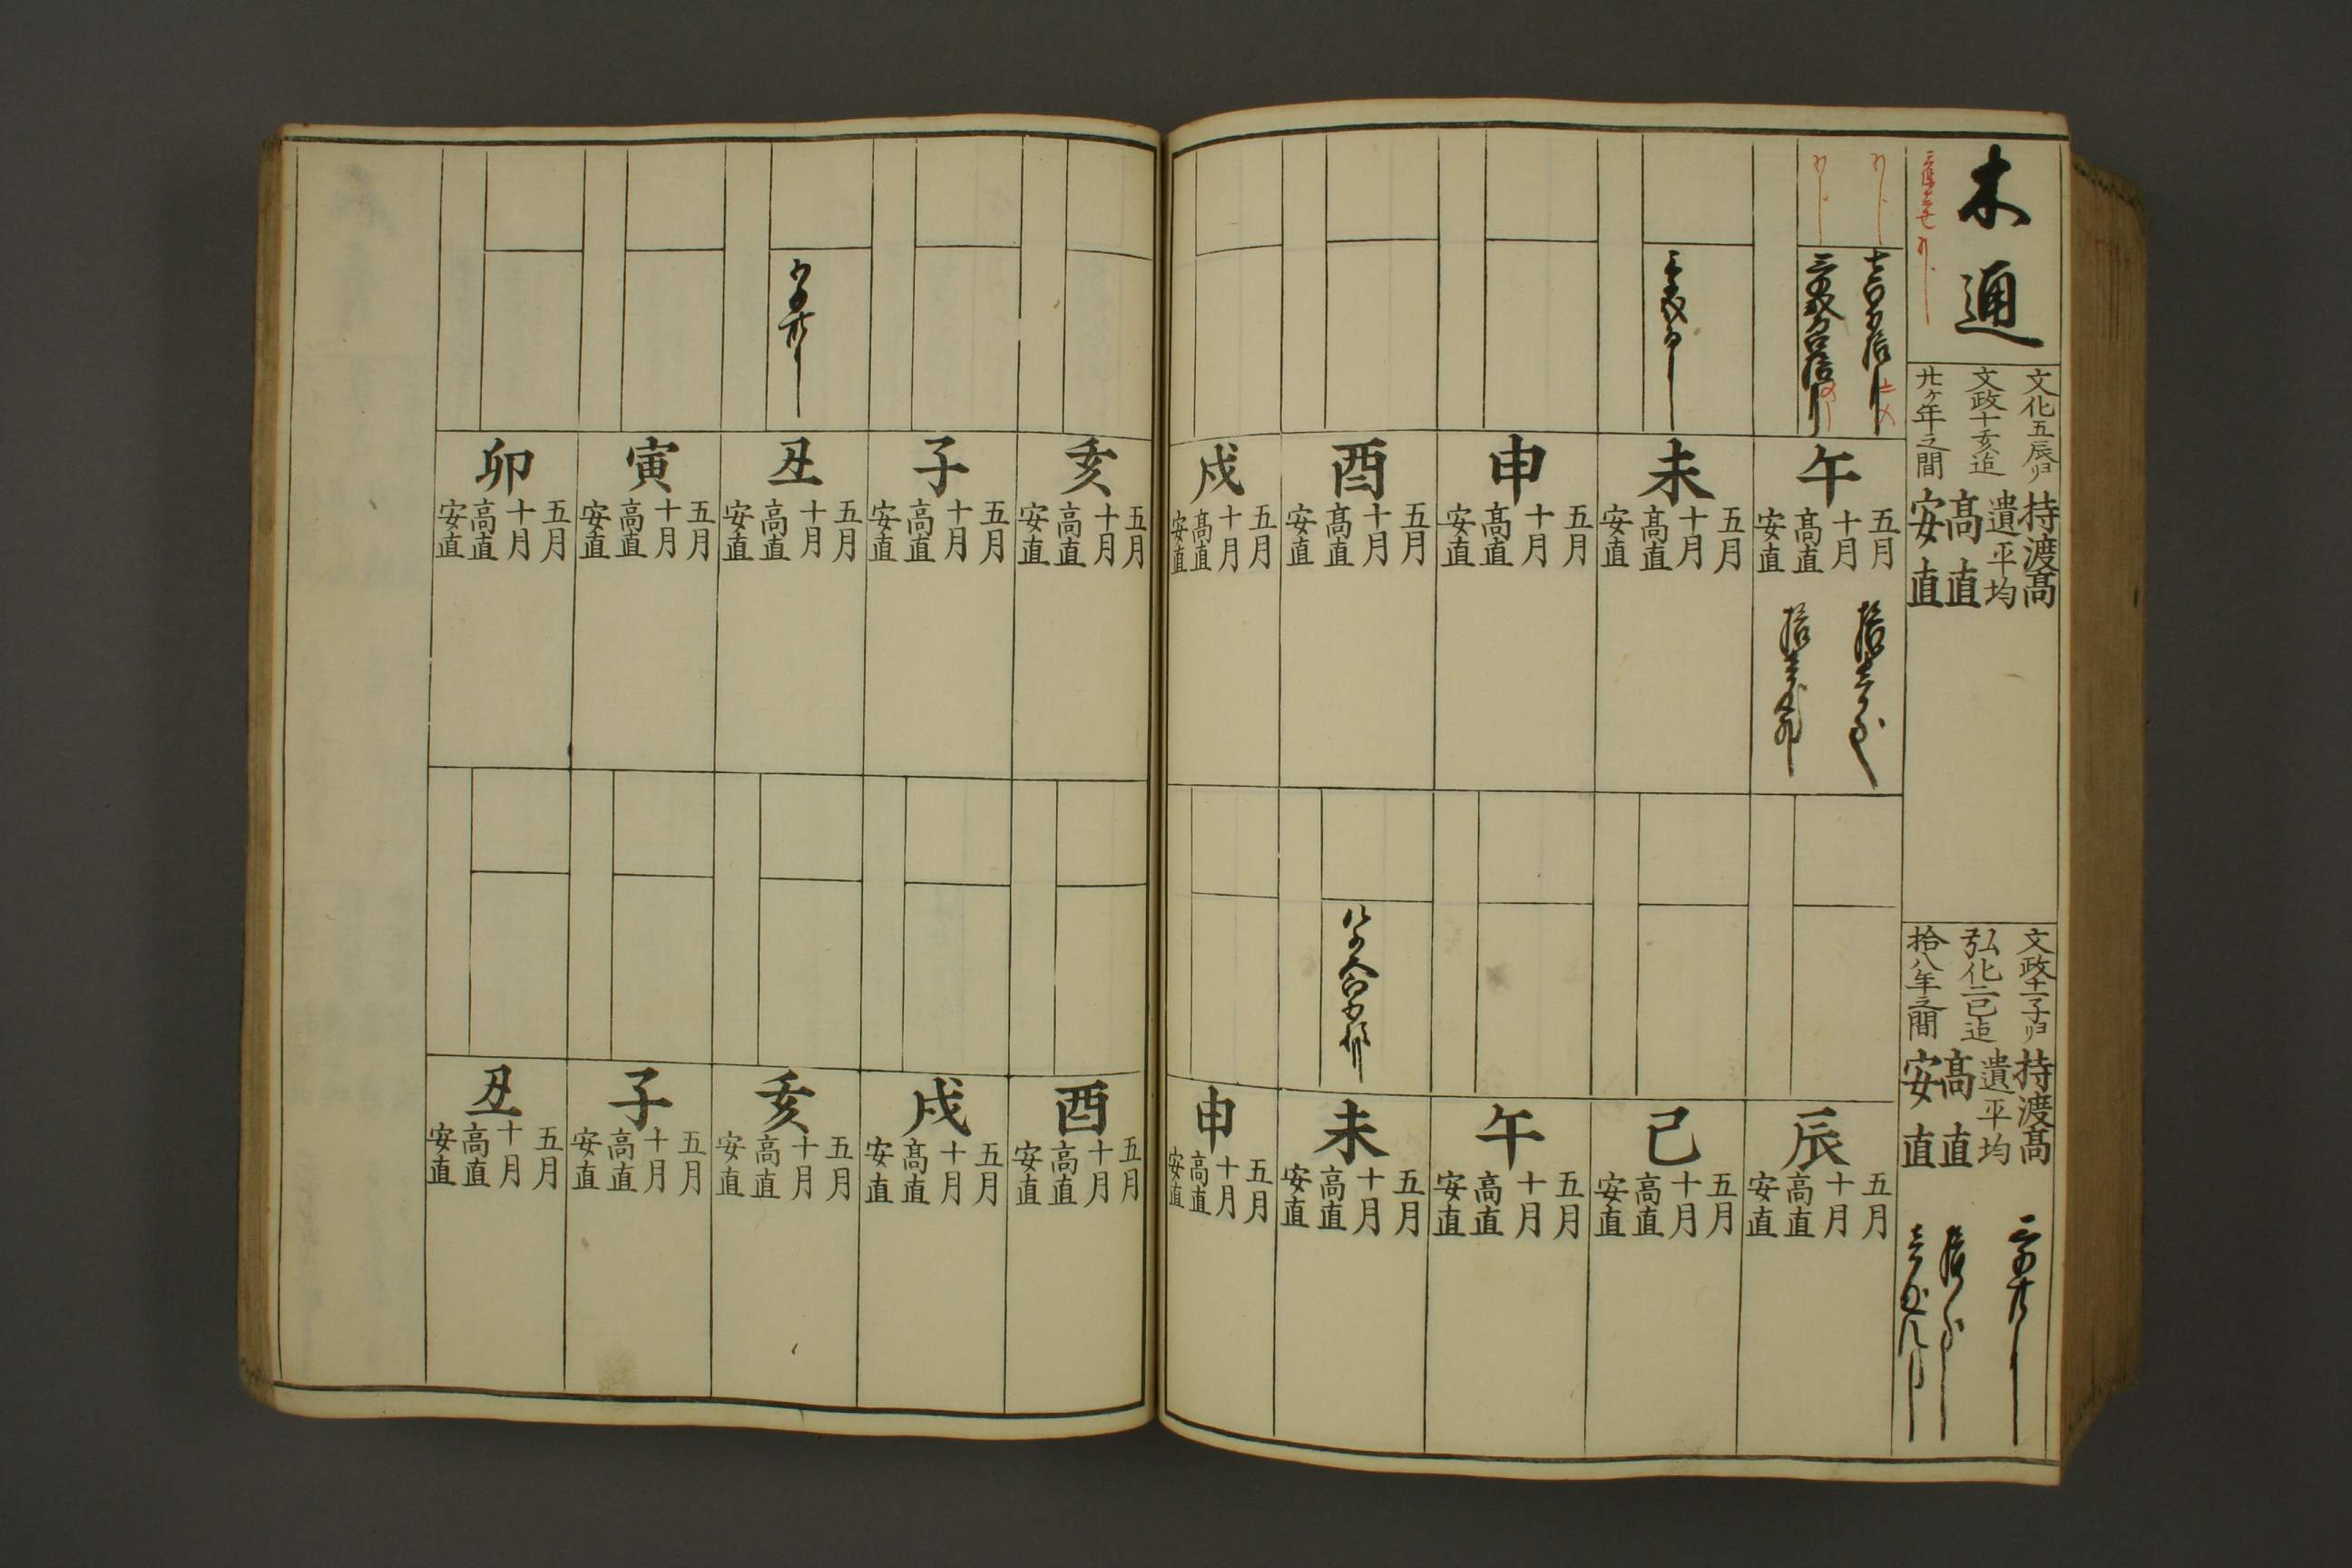 木通
文化五辰ヨリ
文政十亥迠
廿ケ年之間
持渡髙
遺平均
髙直
安直
文政十一子ヨリ
弘化二巳迠
拾八年之間
持渡髙
遺平均
髙直
安直
午
五月
十月
髙直
安直
未
五月
十月
髙直
安直
申
五月
十月
髙直
安直
酉
五月
十月
髙直
安直
戌
五月
十月
髙直
安直
辰
五月
十月
髙直
安直
巳
五月
十月
髙直
安直
午
五月
十月
髙直
安直
未
五月
十月
髙直
安直
申
五月
十月
髙直
安直
亥
五月
十月
髙直
安直
子
五月
十月
髙直
安直
丑
五月
十月
髙直
安直
寅
五月
十月
髙直
安直
卯
五月
十月
髙直
安直
酉
五月
十月
髙直
安直
戌
五月
十月
髙直
安直
亥
五月
十月
髙直
安直
子
五月
十月
髙直
安直
丑
五月
十月
髙直
安直